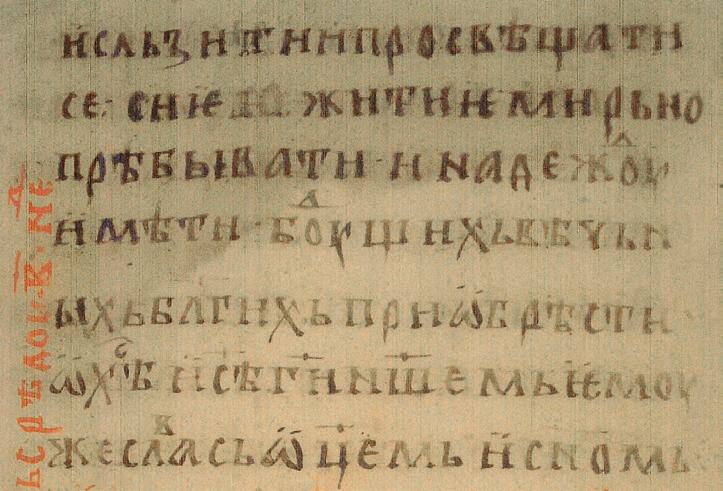 и сльзити и просвѣщати
се· сиѥ жити ѥ мирьно
прѣбывати· и надежⷣоу
имѣти· боуⷣщихь вѣчьн
ыхь блгихь приѡбрѣсти
ѡ хⷭѣ исѣ ги нш҃емь ѥмоу
же слⷡа сь ѡц҃емь и сн҃омь
вь срѣдоу·в҃·неⷣ